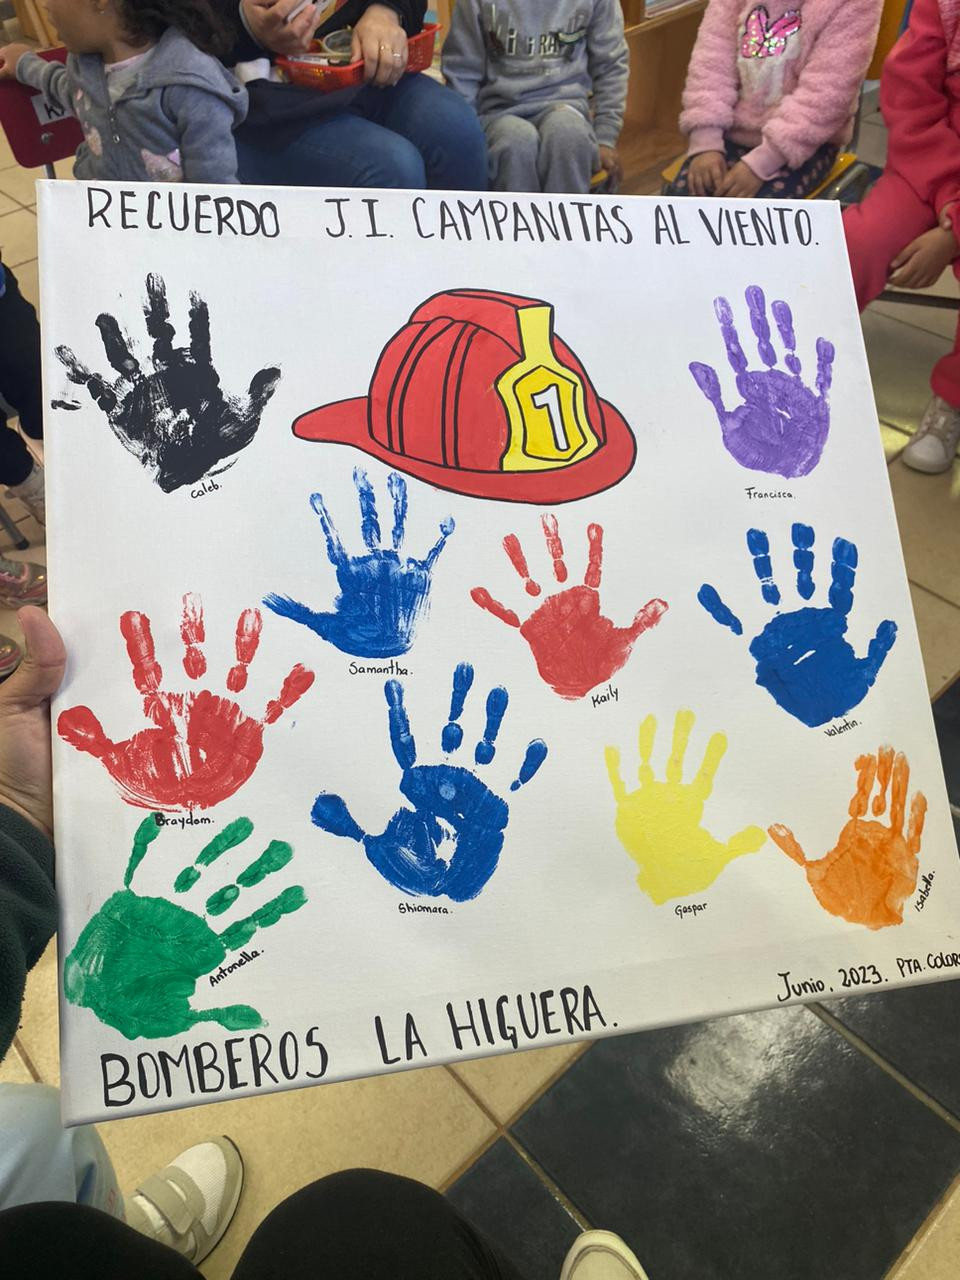 RECUERDO J.I. CAMPANITAS AL VIENTO.
1
Caleb.
Francisca.
Samantha.
Kaily
Valentin.
Braydom.
Shiomara.
Gaspar
Isabella.
Antonella.
Junio, 2023. PTA.
BOMBEROS LA HIGUERA.